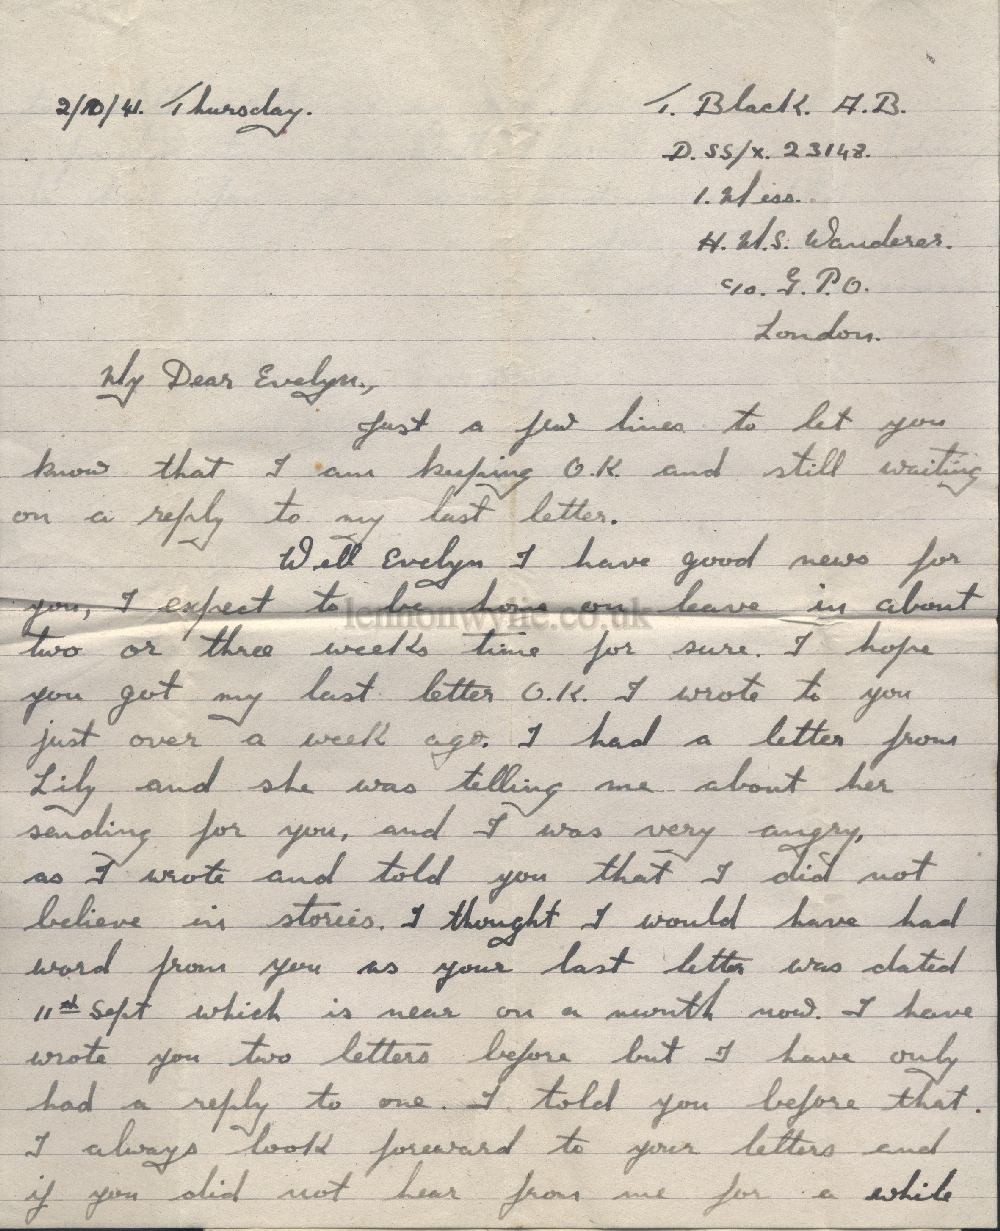 2/10/41. Thursday.
T. Black. A.B.
D. SS/X. 23148.
1. Mess.
H.M.S. Wanderer.
c/o. G.P.O.
London.
My Dear Evelyn.,
Just a few lines to let you
know that I am keeping O.K. and still waiting
on a reply to my last letter.
Well Evelyn I have good news for
you, I expect to be home on leave in about
lennonwylie.co.uk
two or three weeks time for sure. I hope
you got my last letter O.K. I wrote to you
just over a week ago. I had a letter from
Lily and she was telling me about her
sending for you, and I was very angry,
as I wrote and told you that I did not
believe in stories. I thought I would have had
word from you as your last letter was dated
11th Sept which is near on a month now. I have
wrote you two letters before but I have only
had a reply to one. I told you before that.
I always look foreward to your letters and
if you did not hear from me for a while